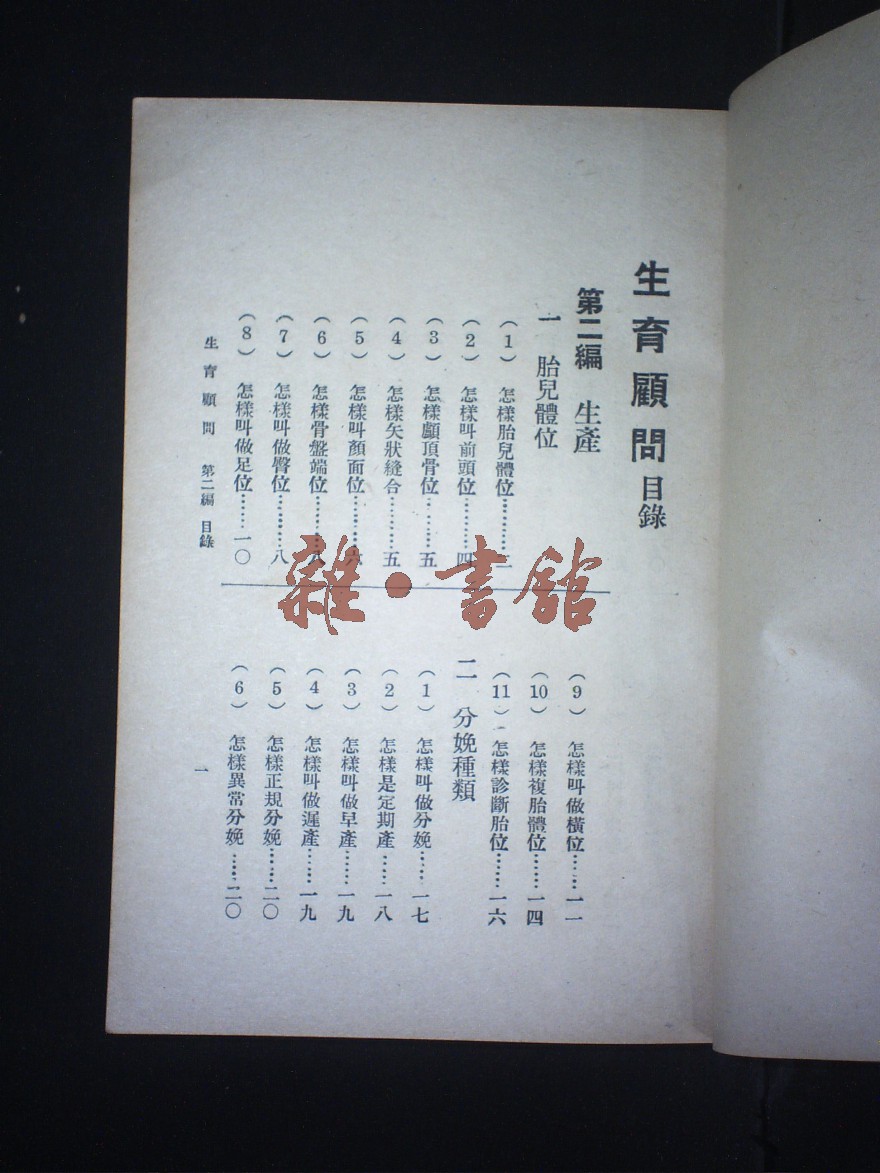 生育顧問目錄
第二編 生產
一 胎兒體位
(1) 怎樣胎兒體位………二
(2) 怎樣叫前頭位………四
(3) 怎樣顱頂骨位………五
(4) 怎樣矢狀縫合………五
(5) 怎樣叫顏面位………六
(6) 怎樣骨盤端位………八
(7) 怎樣叫做臀位………八
(8) 怎樣叫做足位………一〇
(9) 怎樣叫做橫位………一一
(10) 怎樣複胎體位………一四
(11) 怎樣診斷胎位………一六
二 分娩種類
(1) 怎樣叫做分娩……一七
(2) 怎樣是定期產……一八
(3) 怎樣叫做早產……一九
(4) 怎樣叫做遲產……一九
(5) 怎樣正規分娩……二〇
(6) 怎樣異常分娩……二〇
生育顧問 第二編 目錄
一
雜·書館